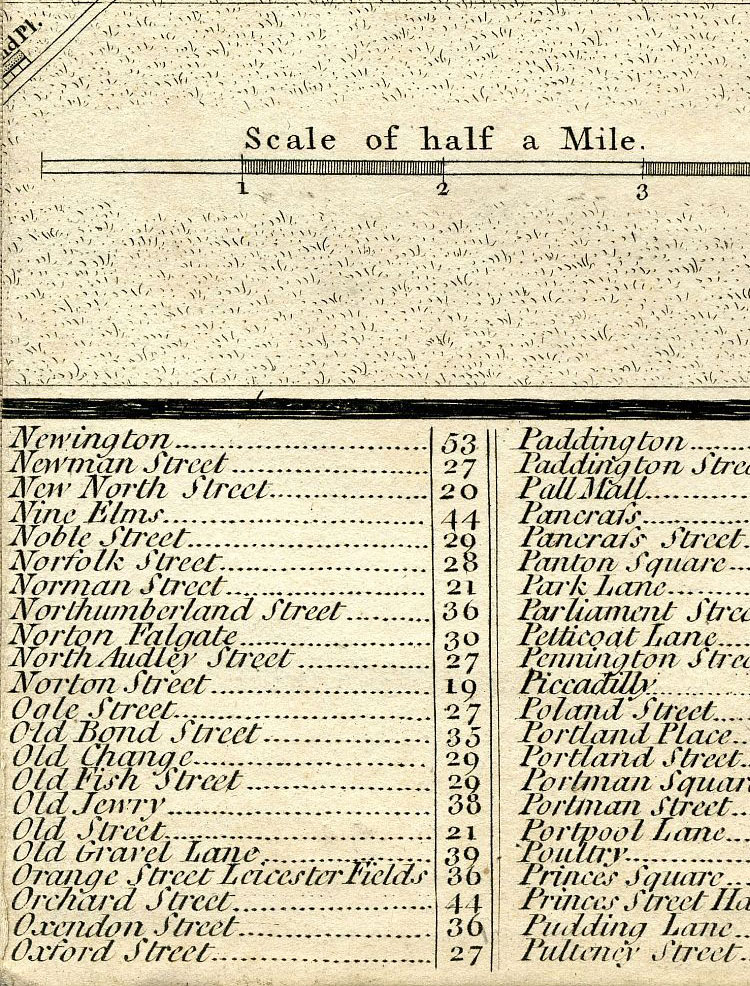 Pl.
Scale of half a Mile.
1 2 3
Newington 53
Newman Street 27
New North Street 20
Nine Elms 44
Noble Street 29
Norfolk Street 28
Norman Street 21
Northumberland Street 36
Norton Falgate 30
North Audley Street 27
Norton Street 19
Ogle Street 27
Old Bond Street 35
Old Change 29
Old Fish Street 29
Old Jewry 38
Old Street 21
Old Gravel Lane 39
Orange Street Leicester Fields 36
Orchard Street 44
Oxendon Street 36
Oxford Street 27
Paddington
Paddington Stree
Pall Mall
Pancraſs
Pancraſs Street
Panton Square
Park Lane
Parliament Stree
Petticoat Lane
Pennington Stree
Piccadilly
Poland Street
Portland Place
Portland Street
Portman Squar
Portman Street
Portpool Lane
Poultry
Princes Square
Princes Street Ha
Pudding Lane
Pulteney Street